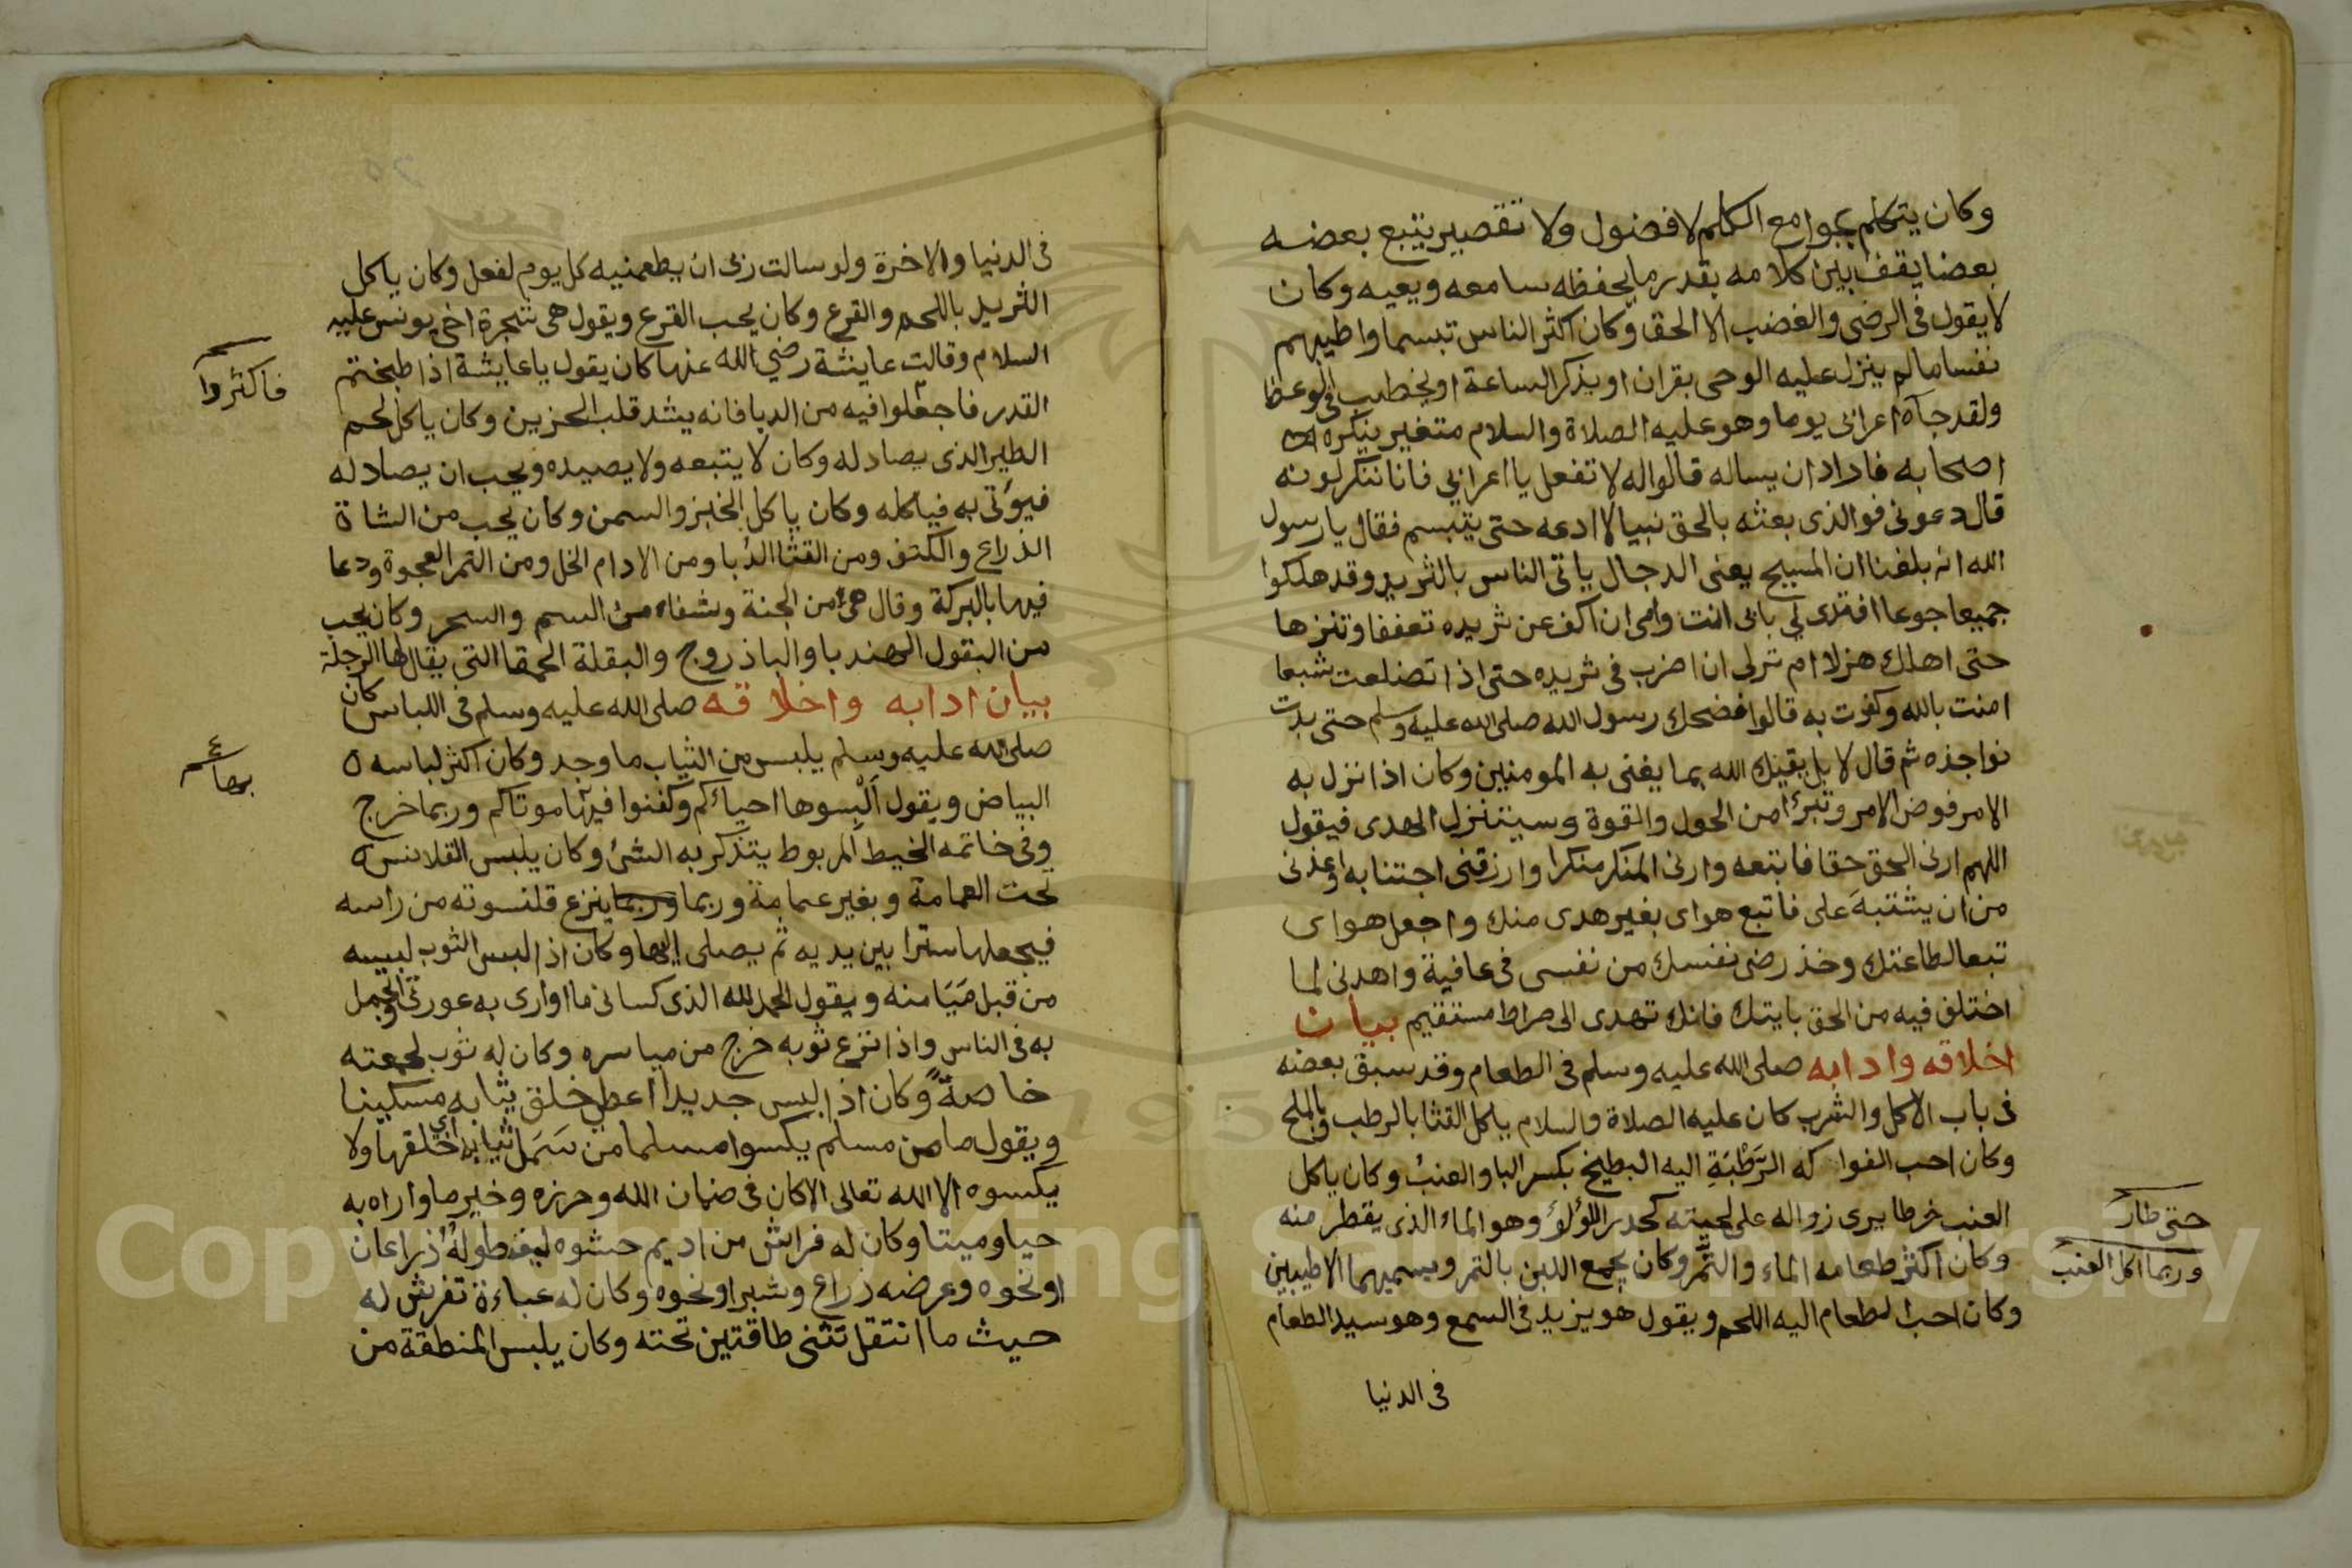 وكان يتكلم بجوامع الكلم لا فضول ولا تقصير يتبع بعضه
بعضا يقف بين كلامه بقدر ما يحفظه سامعه ويعيه وكان
لا يقول فى الرضى والغضب الا الحق وكان اكثر الناس تبسما واطيبهم
نفسا ما لم ينزل عليه الوحى بقران او يذكر الساعة او يخطب فى الوعظ
ولقد جآه اعرابى يوما وهو عليه الصلاة والسلام متغير ينكره
اصحابه فاراد ان يساله قالوا له لا تفعل يا اعرابي فانا ننكر لونه
قال دعونى فوالذى بعثه بالحق نبيا لا ادعه حتى يتبسم فقال يا رسول
الله انه بلغنا ان المسيح يعنى الدجال ياتى الناس بالثريد وقد هلكوا
جميعا جوعا افترى لي بابى انت وامى ان اكف عن ثريده تعففا وتنزها
حتى اهلك هزلا ام ترى ان اضرب فى ثريده حتى اذا تضلعت شبعا
امنت بالله وكفرت به قالوا فضحك رسول الله صلى الله عليه وسلم حتى بدت
نواجذه ثم قال لا بل يغنيك الله بما يغنى به المومنين وكان اذا نزل به
الامر فوض الامر وتبرأ من الحول والقوة وسيتنزل الهدى فيقول
اللهم ارنى الحق حقا فاتبعه وارنى المنكر منكرا وارزقنى اجتنابه واعذنى
من ان يشتبه على فاتبع هواى بغير هدى منك واجعل هواى
تبعا لطاعتك وخذ رضى نفسك من نفسى فى عافية واهدنى لما
اختلف فيه من الحق بايتك فانك تهدى الى صراط مستقيم بيان
اخلاقه وادابه صلى الله عليه وسلم فى الطعام وقد سبق بعضه
فى باب الاكل والشرب كان عليه الصلاة والسلام ياكل القثا بالرطب وبالملح
وكان احب الفواكه الرَّطْبَةِ اليه البطيخ بكسر البا والعنب وكان ياكل
العنب خرطا يرى زواله على لحيته كحدر اللؤلؤ وهو الماء الذى يقطر منه
حتى طار
وكان اكثر طعامه الماء والتمر وكان يجمع اللبن بالتمر ويسميهما الاطيبين
وربما اكل العنب
وكان احب الطعام اليه اللحم ويقول هو يزيد فى السمع وهو سيد الطعام
فى الدنيا
فى الدنيا والاخرة ولو سالت ربى ان يطعمنيه كل يوم لفعل وكان ياكل
الثريد باللحم والقرع وكان يحب القرع ويقول هى شجرة اخى يونس عليه
السلام وقالت عايشة رضي الله عنها كان يقول يا عايشة اذا طبختم
فاكثروا
القدر فاجعلوا فيه من الدبا فانه يشد قلب الحزين وكان ياكل لحم
الطير الذى يصاد له وكان لا يتبعه ولا يصيده ويحب ان يصاد له
فيؤتى به فياكله وكان ياكل الخبز والسمن وكان يحب من الشاة
الذراع والكتف ومن القثا الدُبا ومن الادام الخل ومن التمر العجوة ودعا
فيها بالبركة وقال هى من الجنة وشفاء من السم والسحر وكان يحب
من البقول الهندبا والباذروج والبقلة الحمقا التى يقال لها الرجلة
بيان ادابه واخلاقه صلى الله عليه وسلم فى اللباس كان
صلى الله عليه وسلم يلبس من الثياب ما وجد وكان اكثر لباسه
البياض ويقول اَلْبِسوها احياءكم وكفنوا فيها موتاكم وربما خرج
وفى خاتمه الخيط المربوط يتذكر به الشئ وكان يلبس القلانس
تحت العمامة وبغير عمامة وربما وربما ينزع قلنسوته من راسه
فيجعلها سترا بين يديه ثم يصلى اليها وكان اذا لبس الثوب لبسه
من قبل مَيَامنه ويقول الحمد لله الذى كسانى ما اوارى به عورتى واتجمل
به فى الناس واذا نزع ثوبه خرج من مياسره وكان له ثوب لجمعته
خاصةً وكان اذا لبس جديدا اعطى خلق ثيابه مسكينا
ويقول ما من مسلم يكسوا مسلما من سَمَل ثيابه اي اخلقها ولا
يكسوه الا الله تعالى الا كان فى ضمان الله وحرزه وخير ما واراه به
حيا وميتا وكان له فراش من اديم حشوه ليف طولهُ ذراعان
او نحوه وعرضه ذراع وشبر او نحوه وكان له عباءة تفرش له
حيث ما انتقل تثنى طاقتين تحته وكان يلبس المنطقة من
Copyright © King Saud University